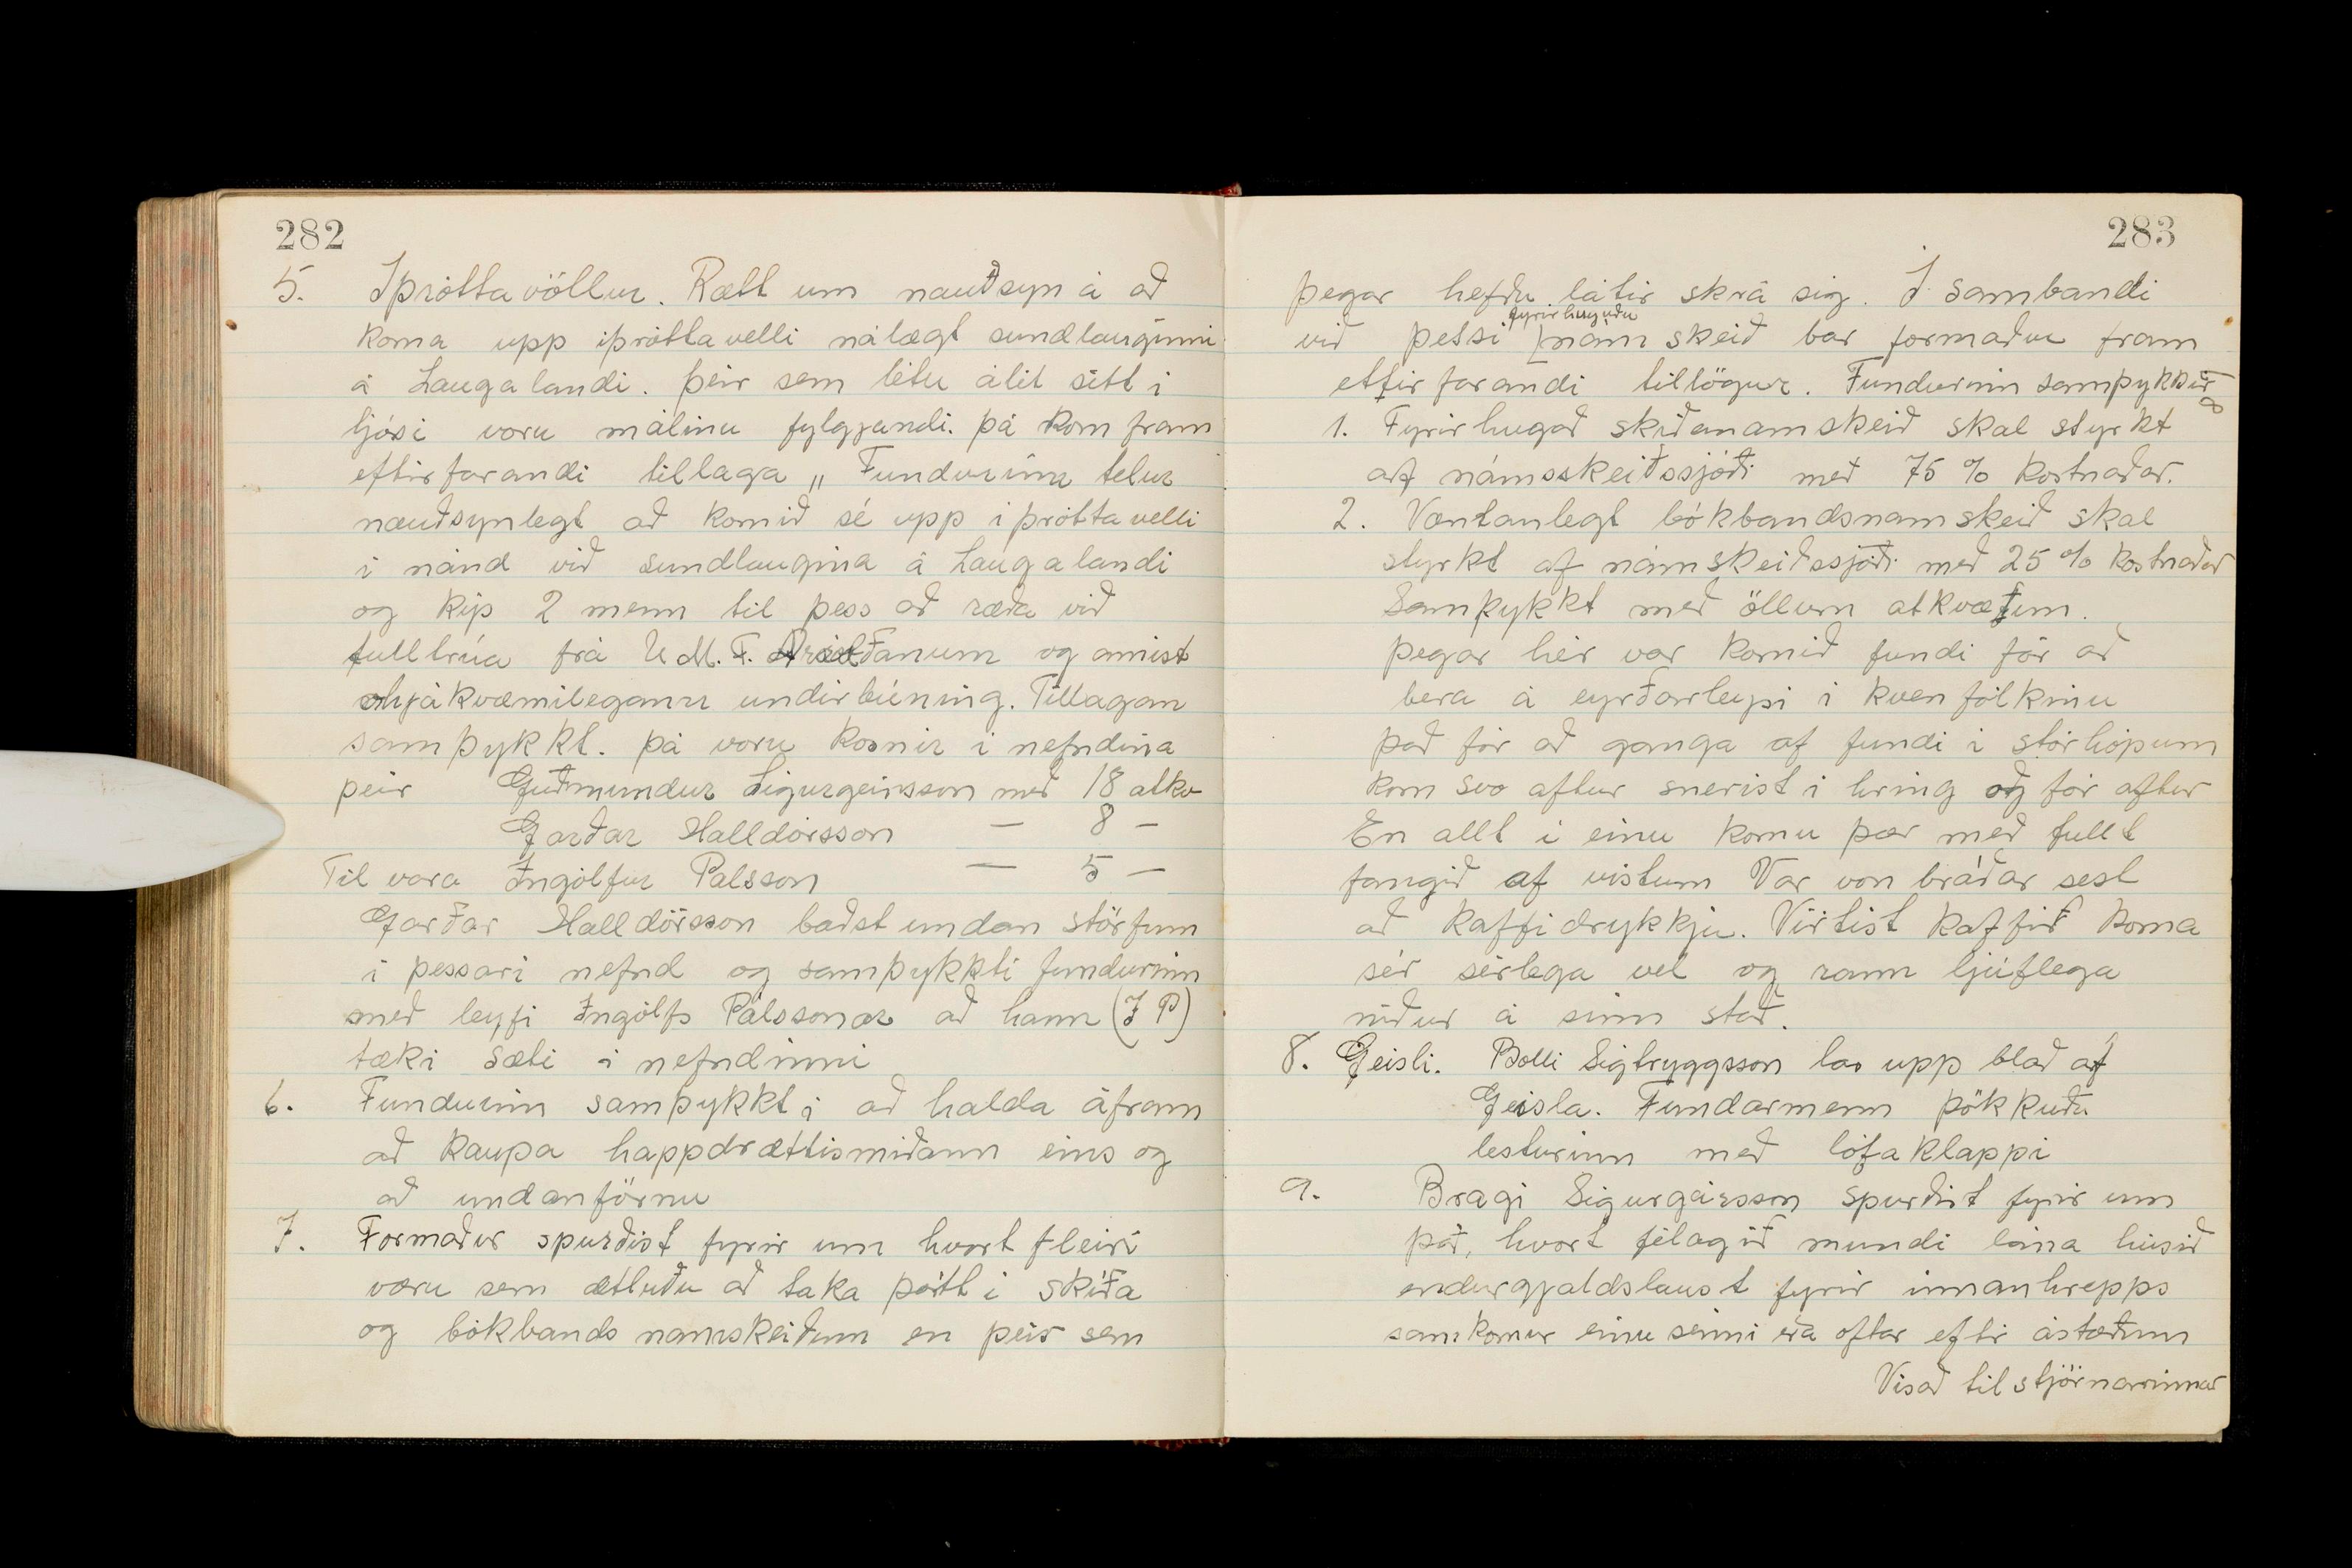 282
5. Íþróttavöllur. Rætt um nauðsyn á að
koma upp íþróttavelli nálægt sundlauginni
á Laugalandi. Þeir sem létu álit sitt í
ljósi voru málinu fylgjandi. Þá kom fram
eftirfarandi tillaga „Fundurinn telur
nauðsynlegt að komið sé upp íþróttavelli
í nánd við sundlaugina á Laugalandi
og kýs 2 menn til þess að ræða við
fulltrúa frá U.M.F. Ársólanum og annist
óhjákvæmilegann undirbúning. Tillagan
samþykkt. Þá voru kosnir í nefndina
þeir Guðmundur Sigurgeirsson með 18 atkv
Garðar Halldórsson — 8 —
Til vara Ingólfur Pálsson — 5 —
Garðar Halldórsson baðst undan störfum
í þessari nefnd og samþykkti fundurinn
með leyfi Ingólfs Pálssonar að hann (I P)
tæki sæti í nefndinni
6. Fundurinn samþykkti að halda áfram
að kaupa happdrættismiðann eins og
að undanförnu
7. Formaður spurðist fyrir um hvort fleiri
væru sem ætluðu að taka þátt í skíða
og bókbands námskeiðum en þeir sem
283
þegar hefðu látið skrá sig. Í sambandi
við þessi fyrirhuguðu námskeið bar formaður fram
eftirfarandi tillögur. Fundurinn samþykkir
1. Fyrirhugað skíðanámskeið skal styrkt
af námsskeiðssjóði með 75 % kostnaðar.
2. Væntanlegt bókbandsnámskeið skal
styrkt af námskeiðssjóði með 25 % kostnaðar
Samþykkt með öllum atkvæðum.
Þegar hér var komið fundi fór að
bera á eyrðarleysi í kvenfólkinu
það fór að ganga af fundi í stórhópum
kom svo aftur snerist í hring og fór aftur
En allt í einu komu þær með fullt
fangið af vistum Var von bráðar sest
að kaffidrykkju. Virtist kaffið koma
sér sérlega vel og rann ljúflega
niður á sinn stað.
8. Geisli. Bolli Sigtryggsson las upp blað af
Geisla. Fundarmenn þökkuðu
lesturinn með lófaklappi
9. Bragi Sigurgeirsson spurðist fyrir um
það, hvort félagið mundi lána húsið
endurgjaldslaust fyrir innanhrepps
samkomur einu sinni eða oftar eftir ástæðum
Vísað til stjórnarinnar